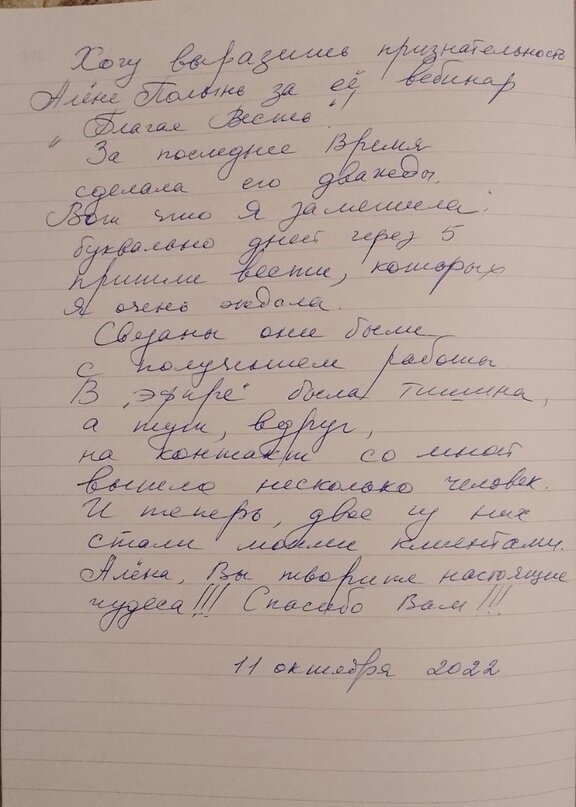 Хочу выразить признательность
Алёне Полынь за её вебинар
"Благая Весть".
За последнее Время
сделала его дважды.
Вот что я заметила:
буквально дней через 5
пришли вести, которых
я очень ждала.
Связаны они были
с получением работы.
В "эфире" была тишина,
а тут, вдруг,
на контакт со мной
вышло несколько человек.
И теперь, двое из них
стали моими клиентами.
Алёна, Вы творите настоящие
чудеса!!! Спасибо Вам!!!
11 октября 2022